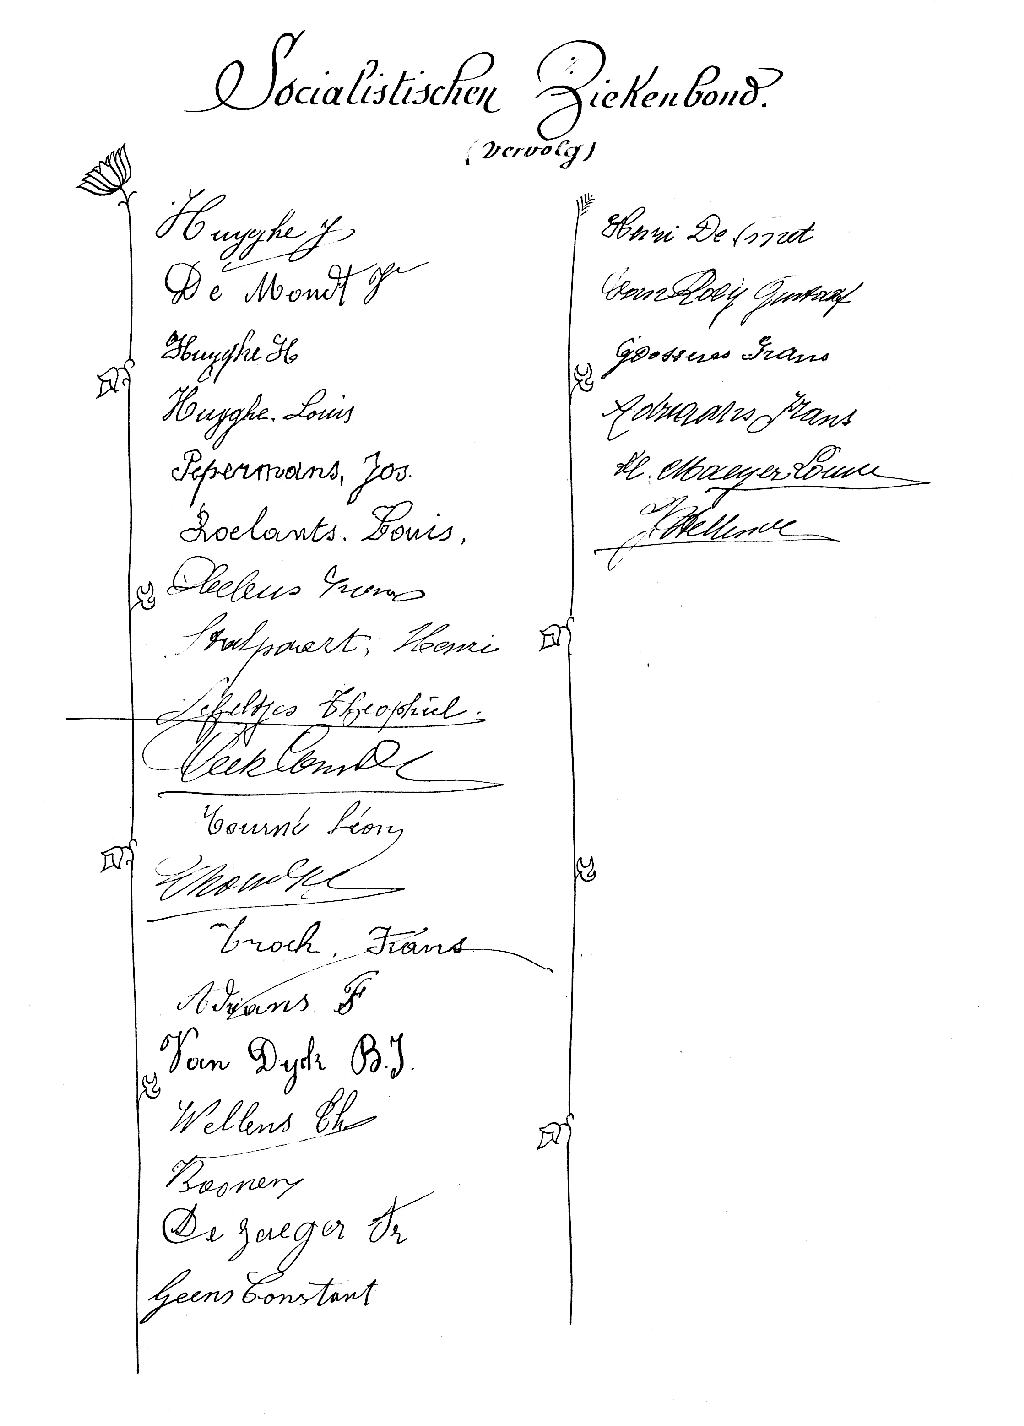 Socialistischen Ziekenbond.
(vervolg)
Huyghe J
De Mondt Jr
Huyghe H
Huyghe. Louis
Pepermans, Jos.
Roelants. Louis,
Stalpaert, Henri
Theophiel.
Tourné Léon
Troch, Frans
Adrians F
Van Dyck B.J.
Wellens Ch
De Jaeger Fr
Geens Constant
Henri De Smet
Van Roey Gustaaf
Goossens Frans
Adriaans Frans
De Maeyer Louis